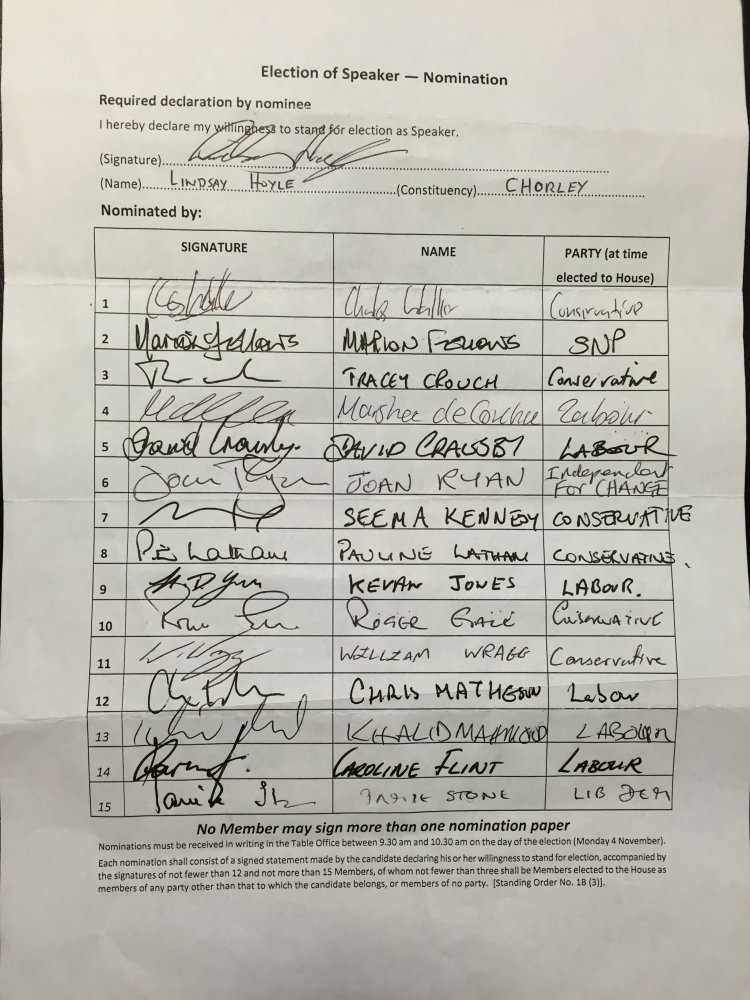 Election of Speaker — Nomination
Required declaration by nominee
I hereby declare my willingness to stand for election as Speaker.
(Signature)
(Name) LINDSAY HOYLE (Constituency) CHORLEY
Nominated by:
SIGNATURE NAME PARTY (at time elected to House)
1 Charles Walker Conservative
2 Marion Fellows MARION FELLOWS SNP
3 TRACEY CROUCH Conservative
4 Marsha de Cordova Labour
5 David Crausby DAVID CRAUSBY LABOUR
6 Joan Ryan JOAN RYAN Independent FOR CHANGE
7 SEEMA KENNEDY CONSERVATIVE
8 P.E. Latham PAULINE LATHAM CONSERVATIVE.
9 KEVAN JONES LABOUR.
10 ROGER GALE CONSERVATIVE
11 WILLIAM WRAGG Conservative
12 CHRIS MATHESON Labour
13 KHALID MAHMOOD LABOUR
14 CAROLINE FLINT LABOUR
15 JAMIE STONE LIB DEM
No Member may sign more than one nomination paper
Nominations must be received in writing in the Table Office between 9.30 am and 10.30 am on the day of the election (Monday 4 November).
Each nomination shall consist of a signed statement made by the candidate declaring his or her willingness to stand for election, accompanied by
the signatures of not fewer than 12 and not more than 15 Members, of whom not fewer than three shall be Members elected to the House as
members of any party other than that to which the candidate belongs, or members of no party. [Standing Order No. 1B (3)].